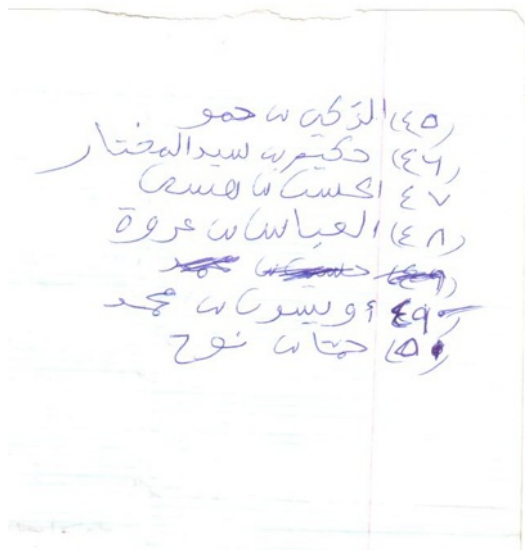 (٤٥) الزكي بن حمو
(٤٦) حكيم بن سيد المختار
٤٧ الحسن بن عيسى
(٤٨) العباس بن عروة
(٤٩)
٤٩ أويس بن محمد
(٥٠) حتا بن نوح